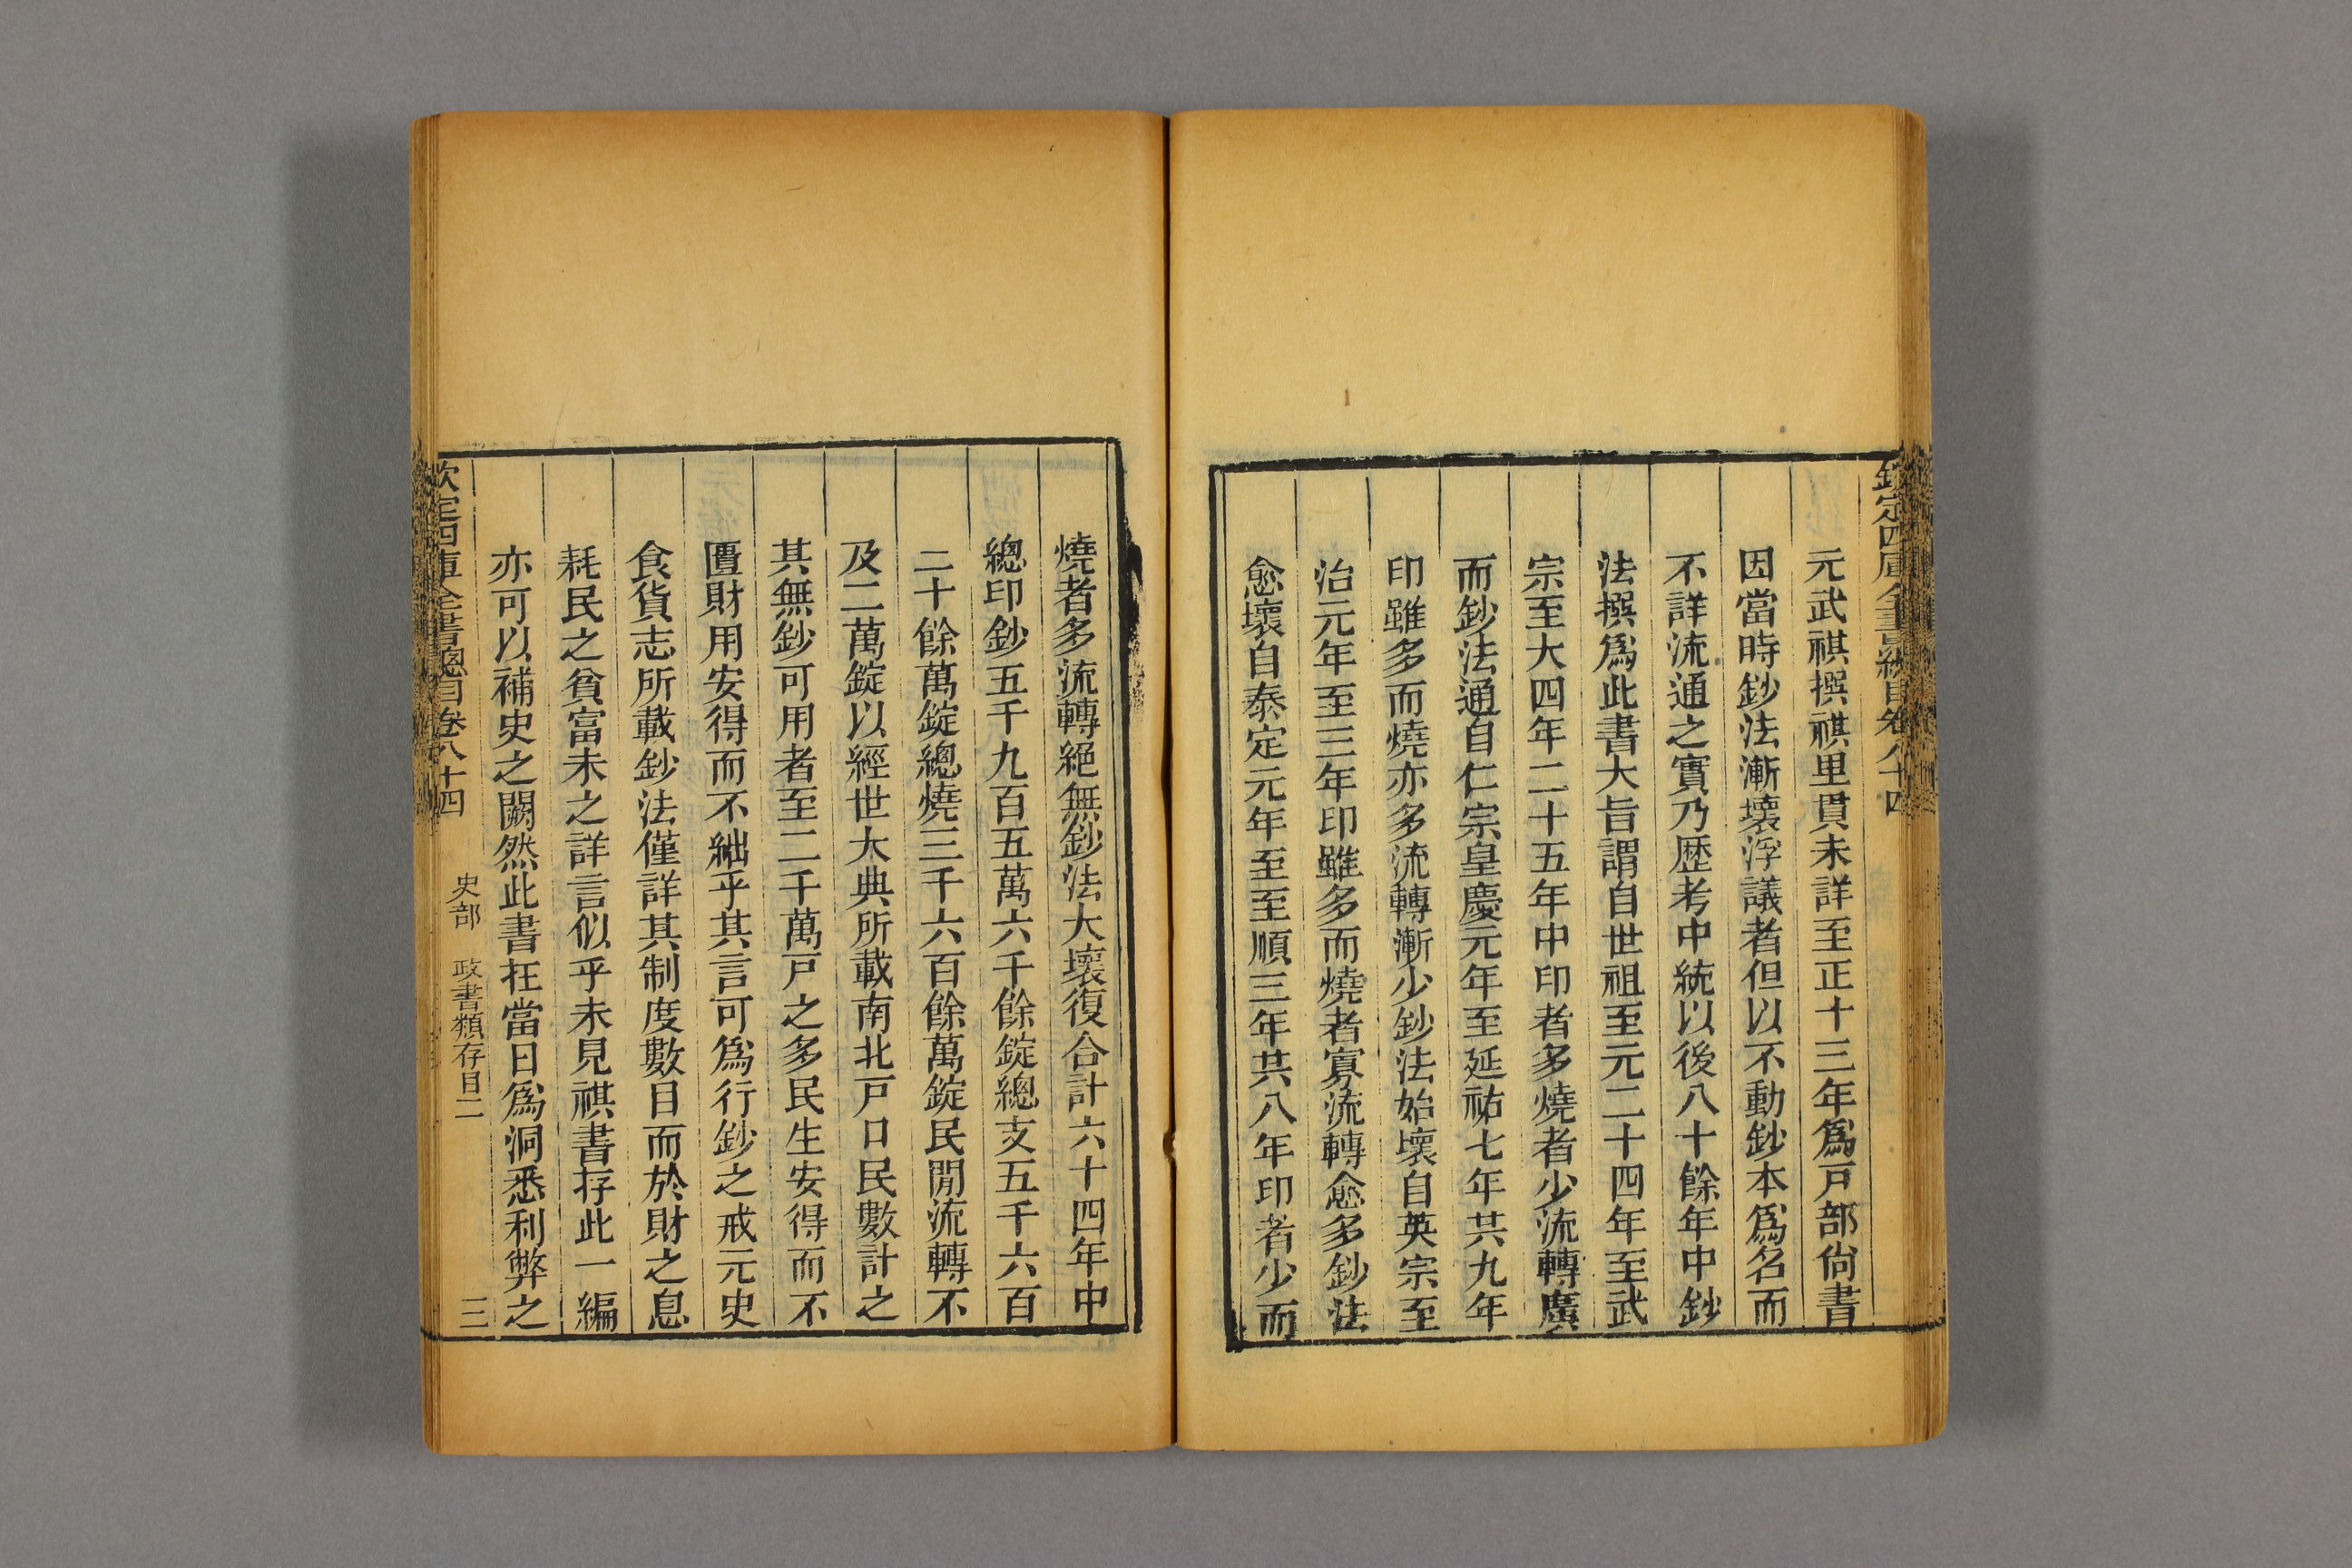 欽定四庫全書總目卷八十四
元武祺撰祺里貫未詳至正十三年爲戸部尙書
因當時鈔法漸壞浮議者但以不動鈔本爲名而
不詳流通之實乃歷考中統以後八十餘年中鈔
法撰爲此書大旨謂自世祖至元二十四年至武
宗至大四年二十五年中印者多燒者少流轉廣
而鈔法通自仁宗皇慶元年至延祐七年共九年
印雖多而燒亦多流轉漸少鈔法始壞自英宗至
治元年至三年印雖多而燒者寡流轉愈多鈔法
愈壞自泰定元年至至順三年共八年印者少而
燒者多流轉絕無鈔法大壞復合計六十四年中
總印鈔五千九百五萬六千餘錠總支五千六百
二十餘萬錠總燒三千六百餘萬錠民閒流轉不
及二萬錠以經世大典所載南北戸口民數計之
其無鈔可用者至二千萬戸之多民生安得而不
匱財用安得而不絀乎其言可爲行鈔之戒元史
食貨志所載鈔法僅詳其制度數目而於財之息
耗民之貧富未之詳言似乎未見祺書存此一編
亦可以補史之闕然此書在當日爲洞悉利弊之
欽定四庫全書總目卷八十四 史部 政書類存目二 三